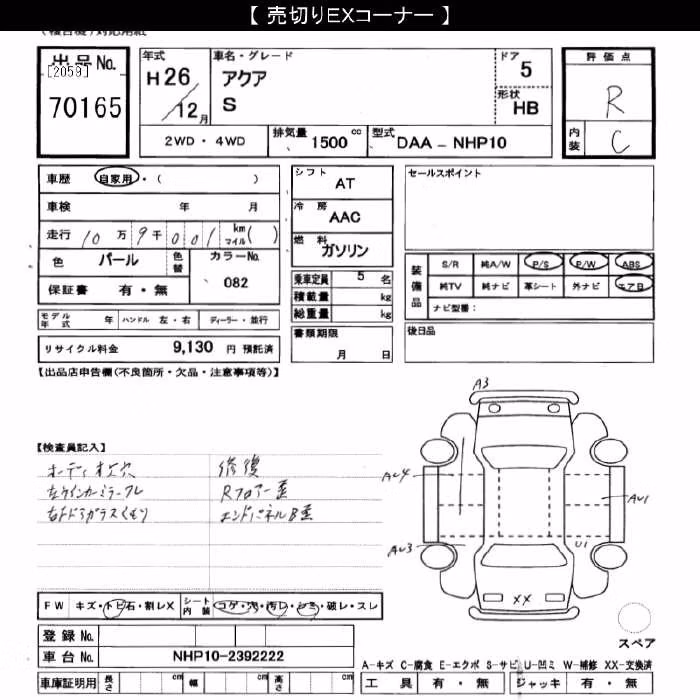 【 売切りEXコーナー 】
出品No.
[2059]
70165
年式
H26
12月
車名・グレード
アクア
S
ドア
5
形状
HB
評価点
R
内装
C
2WD・4WD
排気量 1500 cc
型式 DAA－NHP10
車歴 自家用・( )
車検 年 月
走行 10万9千001 km マイル( )
色 パール 色替
カラーNo.
082
保証書 有・無
シフト
AT
冷房
AAC
燃料
ガソリン
乗車定員 5 名
積載量 kg
総重量 kg
セールスポイント
装備品
S/R 純A/W P/S P/W ABS
純TV 純ナビ 革シート 外ナビ エアB
ナビ型番：
モデル年式 年 ハンドル 左・右 ディーラー・並行
リサイクル料金 9,130 円 預託済
書類期限
月 日
後日品
【出品店申告欄(不良箇所・欠品・注意事項等)】
【検査員記入】
修復
Rフロアー歪
エンドパネルB歪
A3
AU4
AU3
AU1
U1
XX
スペア
FW キズ・トビ石・割レX
シート内装 コゲ・穴・汚レ・シミ・破レ・スレ
登録No.
車台No. NHP10-2392222
車庫証明用 長さ cm 幅 cm 高さ cm
A-キズ C-腐食 E-エクボ S-サビ U-凹ミ W-補修 XX-交換済
工具 有・無 ジャッキ 有・無